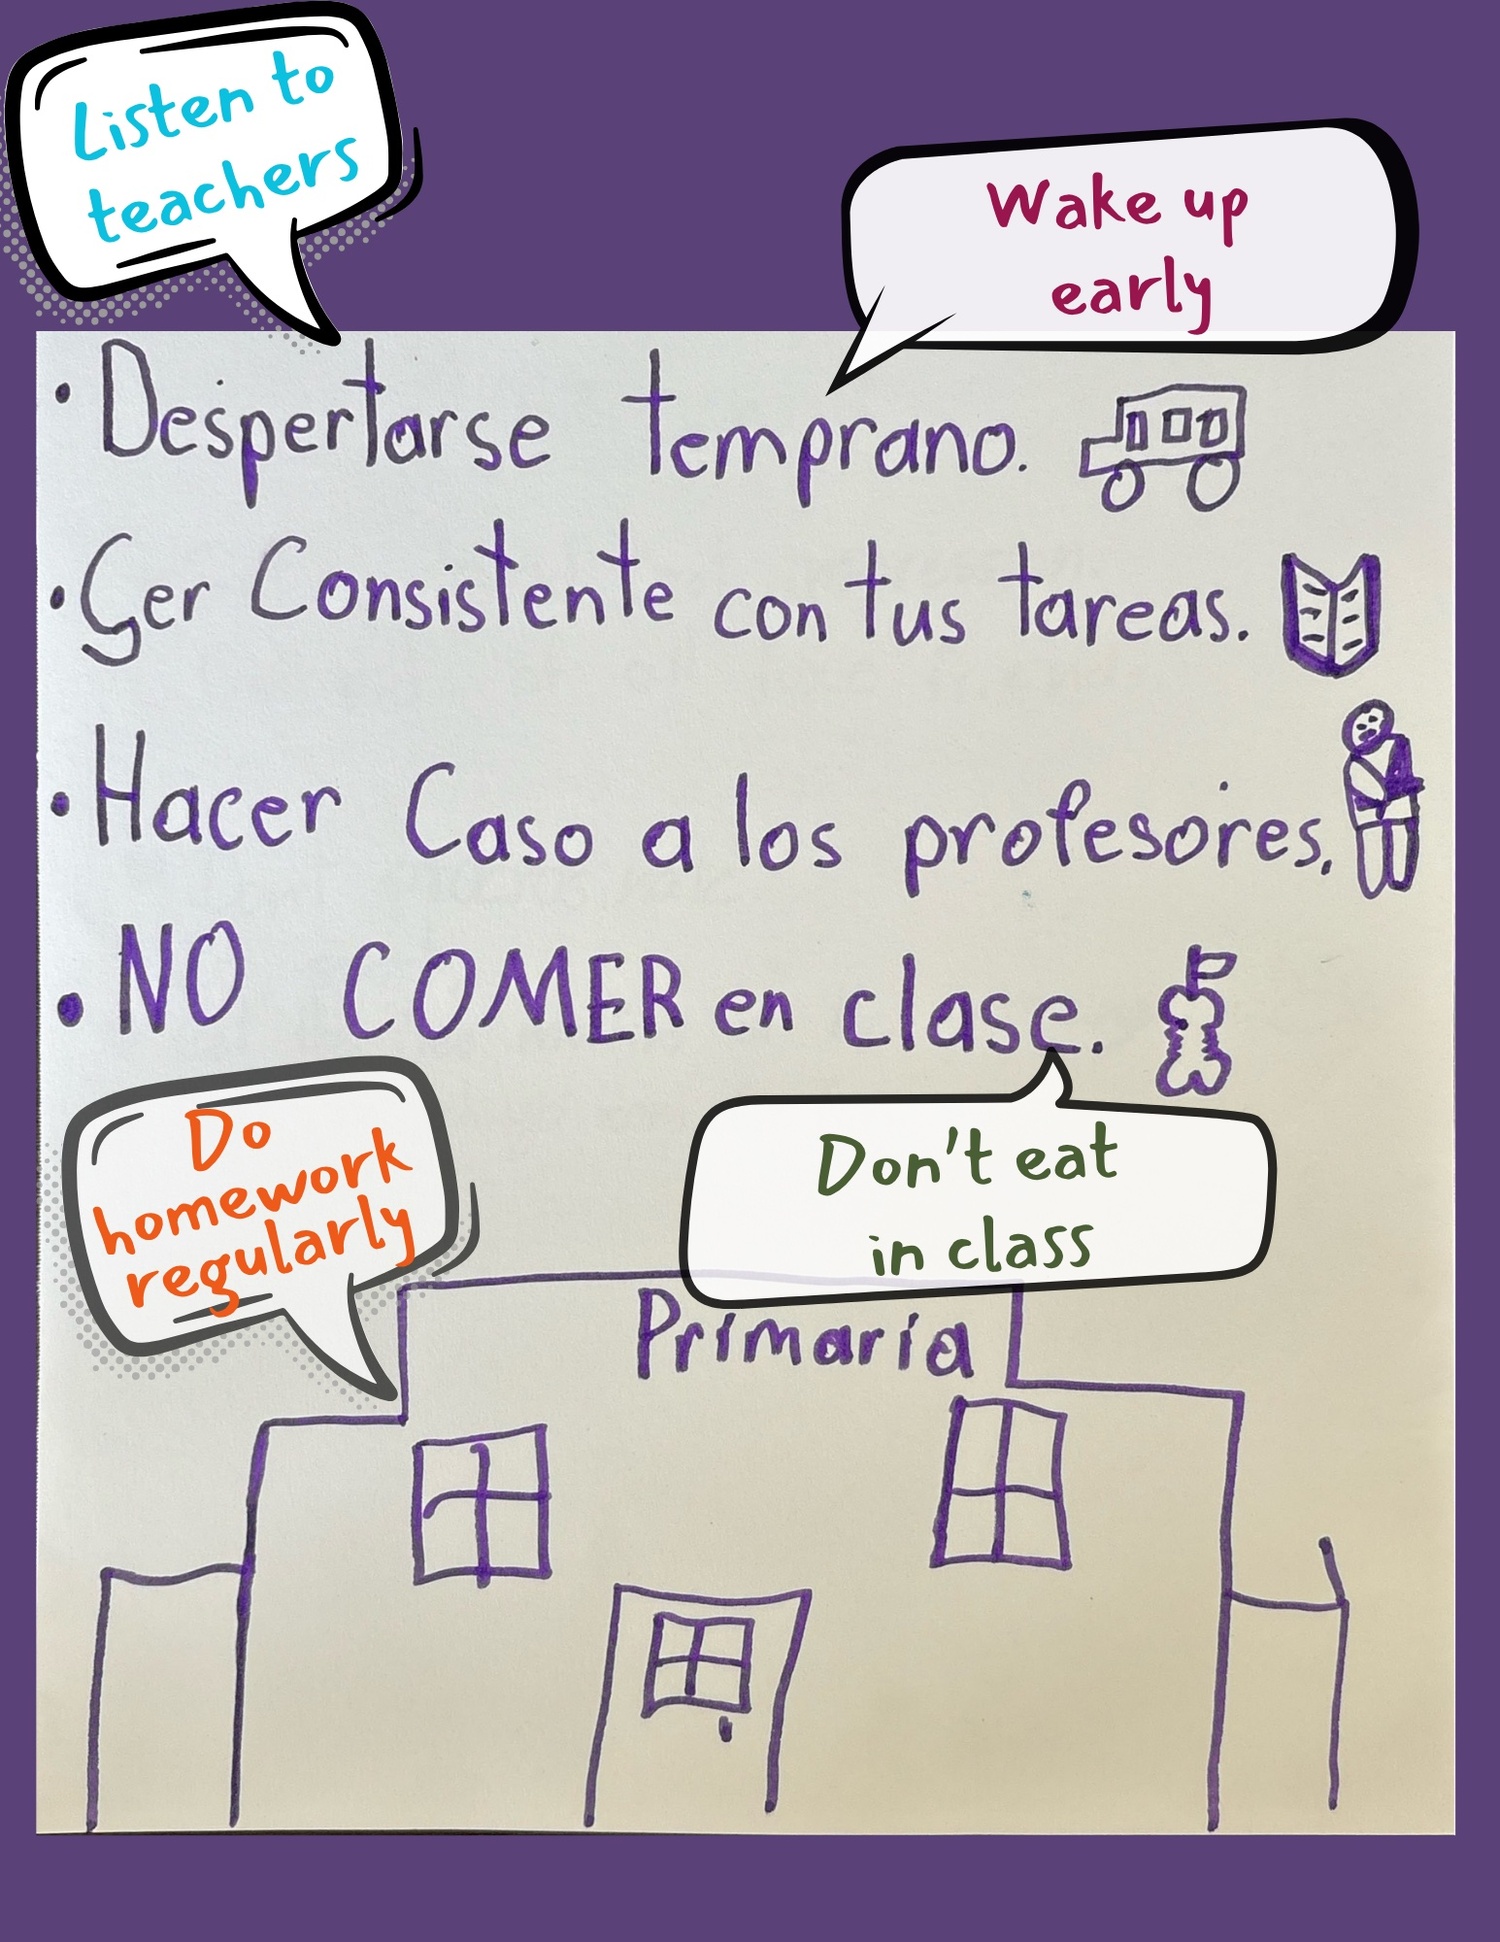 Listen to
teachers
Wake up
early
• Despertarse temprano.
• Ser Consistente con tus tareas.
• Hacer Caso a los profesores.
• NO COMER en clase.
Do
homework
regularly
Don't eat
in class
Primaria